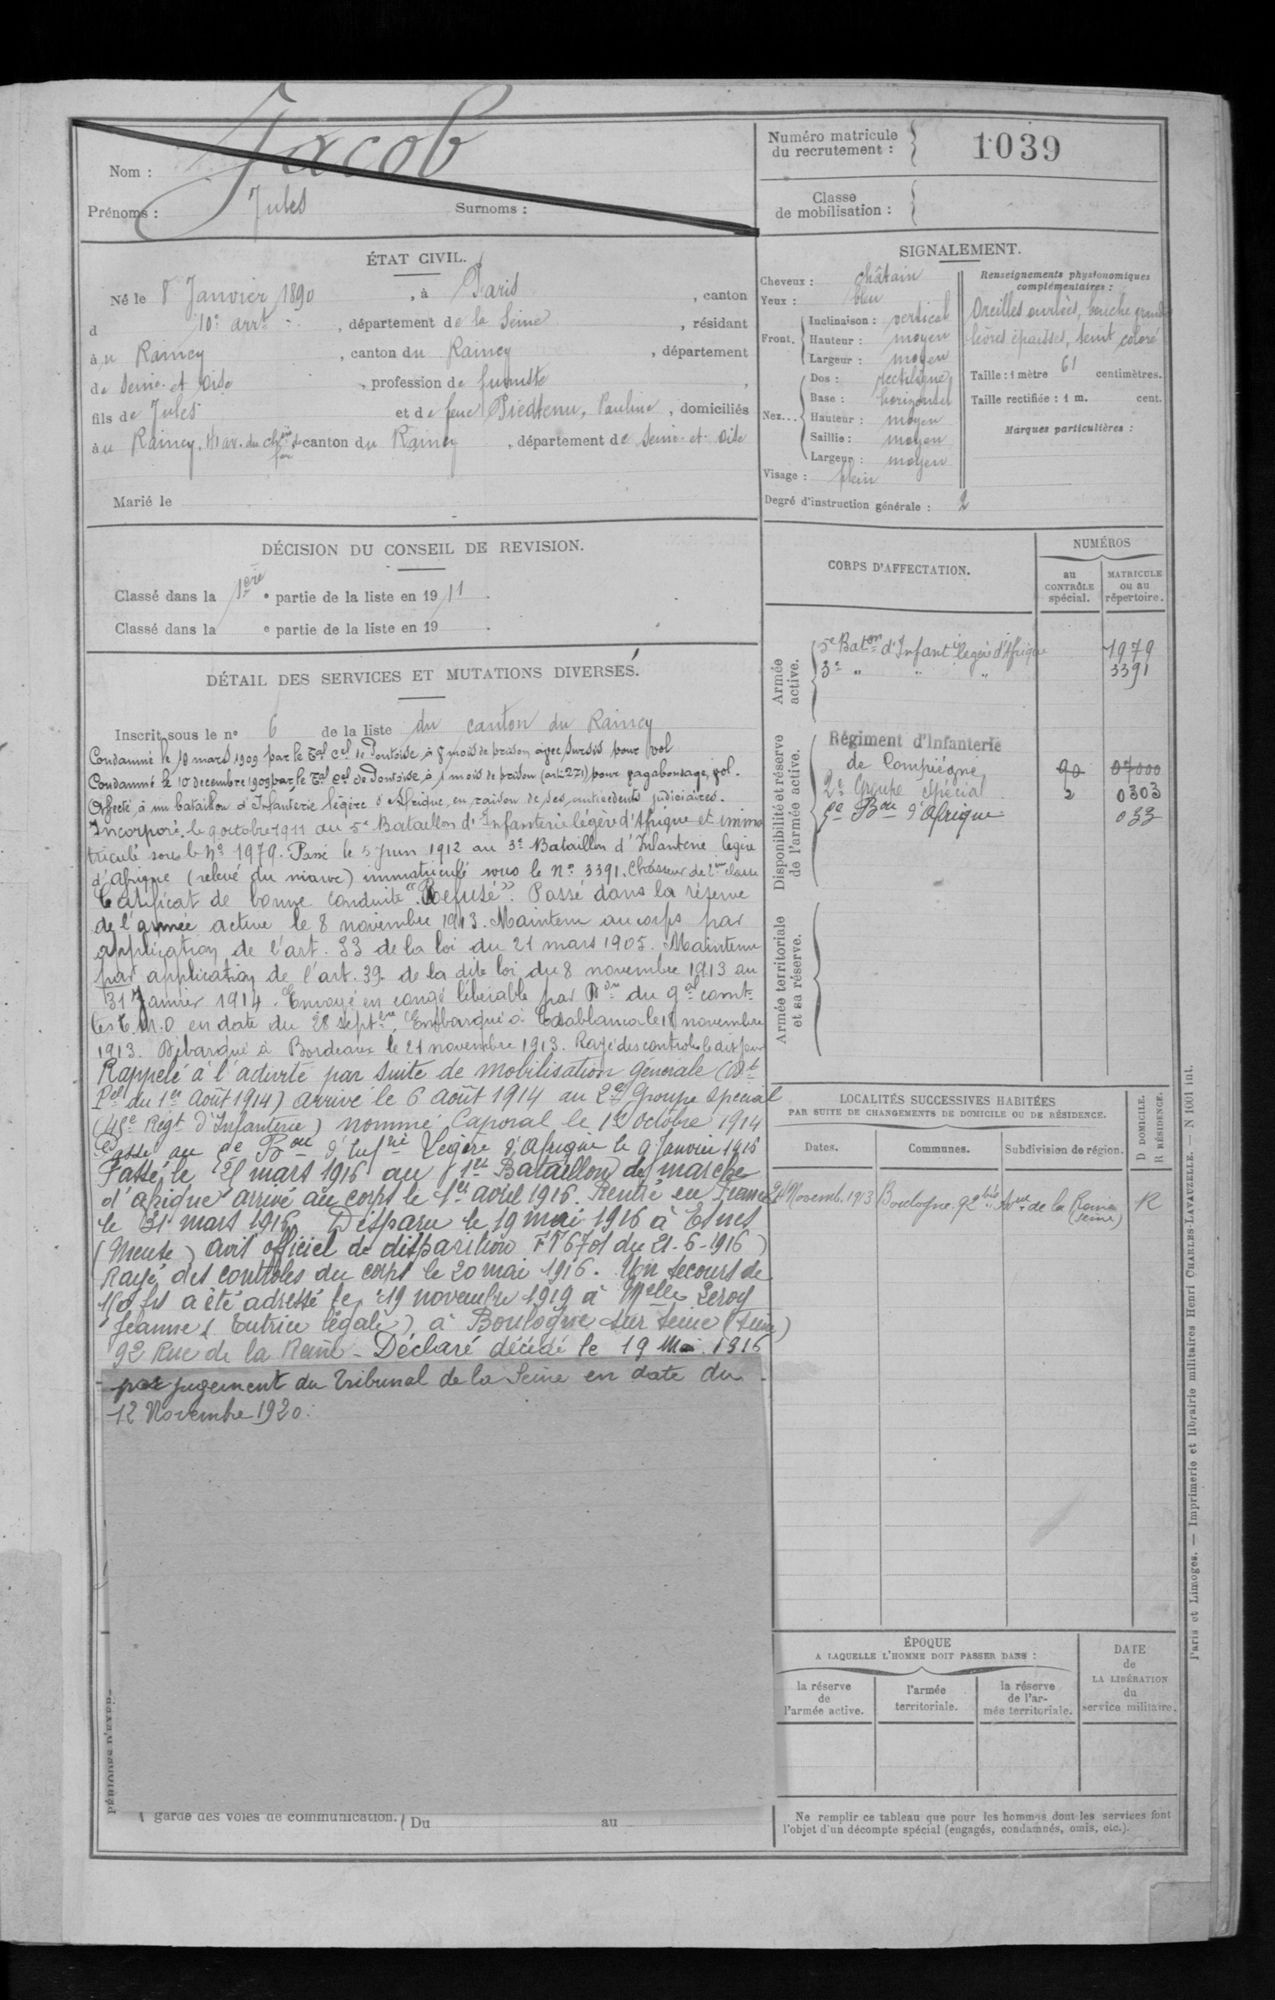 Nom : Jacob
Prénoms : Jules Surnoms :
Numéro matricule du recrutement : 1039
Classe de mobilisation :
ÉTAT CIVIL.
Né le 8 Janvier 1890, à Paris, canton
d 10e arrt, département de la Seine, résidant
à u Raincy, canton du Raincy, département
de Seine et Oise, profession de fumiste,
fils de Jules et de feue Piedtenu, Pauline, domiciliés
à u Raincy, av. du chin de fer canton du Raincy, département de Seine-et-Oise
Marié le
SIGNALEMENT.
Cheveux : châtain
Yeux : bleu
Front. Inclinaison : vertical
Hauteur : moyen
Largeur : moyen
Nez... Dos : rectiligne
Base : horizontal
Hauteur : moyen
Saillie : moyen
Largeur : moyen
Visage : plein
Renseignements physionomiques complémentaires :
Oreilles ourlées, bouche grande
lèvres épaisses, teint coloré
Taille : 1 mètre 61 centimètres.
Taille rectifiée : 1 m. cent.
Marques particulières :
Degré d'instruction générale : 2
DÉCISION DU CONSEIL DE REVISION.
Classé dans la 1ère partie de la liste en 1911.
Classé dans la e partie de la liste en 19 .
DÉTAIL DES SERVICES ET MUTATIONS DIVERSES.
Inscrit sous le n° 6 de la liste du canton du Raincy
Condamné le 18 mars 1909 par le Tal Cel de Pontoise à 8 mois de prison avec sursis pour vol
Condamné le 10 decembre 1909 par le Tal Cel de Pontoise à 1 mois de prison (art. 271) pour vagabondage, vol.
Affecté à un bataillon d'Infanterie légère d'Afrique, en raison de ses antécédents judiciaires.
Incorporé le 9 octobre 1911 au 5e Bataillon d'Infanterie légère d'Afrique et imma
triculé sous le No 1979. Passé le 5 Juin 1912 au 3e Bataillon d'Infanterie légère
d'Afrique (relevé du maroc) immatriculé sous le No 3391. Chasseur de 2ème classe
Certificat de bonne conduite "Refusé". Passé dans la réserve
de l'armée active le 8 novembre 1913. Maintenu au corps par
application de l'art. 33 de la loi du 21 mars 1905. Maintenu
par application de l'art. 39 de la dite loi du 8 novembre 1913 au
31 Janvier 1914. Envoyé en congé libérable par du gal comt
les T.M.O en date du 28 septbre. Embarqué à Casablanca le 18 novembre
1913. Débarqué à Bordeaux le 21 novembre 1913. Rayé des controles le dit jour
Rappelé à l'activité par suite de mobilisation générale (Dt
Pel du 1er Août 1914) arrivé le 6 Août 1914 au 2e Groupe spécial
(45e Régt d'Infanterie) nommé Caporal le 1er Octobre 1914
Passé au 5e Bon d'Infrie Légère d'Afrique le 9 Janvier 1916
Passé le 25 mars 1916 au 1er Bataillon de marche
d'Afrique arrivé au corps le 1er avril 1916. Rentré en France
le 31 mars 1916. Disparu le 19 mai 1916 à Esnes
(Meuse) avis officiel de disparition FT 6701 du 21-6-1916)
Rayé des contrôles du corps le 20 mai 1916. Un secours de
150 frs a été adressé le 19 novembre 1919 à Melle Leroy
Jeanne (Tutrice légale) à Boulogne sur Seine (Seine)
92 Rue de la Reine - Déclaré décédé le 19 Mai 1916
par jugement du Tribunal de la Seine en date du
12 Novembre 1920.
PÉRIODES D'EXER-
garde des voies de communication. Du au
CORPS D'AFFECTATION.
NUMÉROS
au CONTRÔLE spécial.
MATRICULE ou au répertoire.
Armée active.
5e Baton d'Infantie légère d'Afrique 1979
3e " " " 3391
Disponibilité et réserve de l'armée active.
Régiment d'Infanterie
de Compiègne 90 07000
2e Groupe spécial 2 0303
5e Bon d'Afrique 033
Armée territoriale et sa réserve.
LOCALITÉS SUCCESSIVES HABITÉES
PAR SUITE DE CHANGEMENTS DE DOMICILE OU DE RÉSIDENCE.
Dates. Communes. Subdivision de région. D DOMICILE. R RÉSIDENCE.
24 Novemb. 1913 Boulogne, 92 bis Aue de la Reine (Seine) R
ÉPOQUE
A LAQUELLE L'HOMME DOIT PASSER DANS :
la réserve de l'armée active.
l'armée territoriale.
la réserve de l'armée territoriale.
DATE de LA LIBÉRATION du service militaire.
Ne remplir ce tableau que pour les hommes dont les services font
l'objet d'un décompte spécial (engagés, condamnés, omis, etc.).
Paris et Limoges. — Imprimerie et librairie militaires Henri CHARLES-LAVAUZELLE. — N 1001 int.